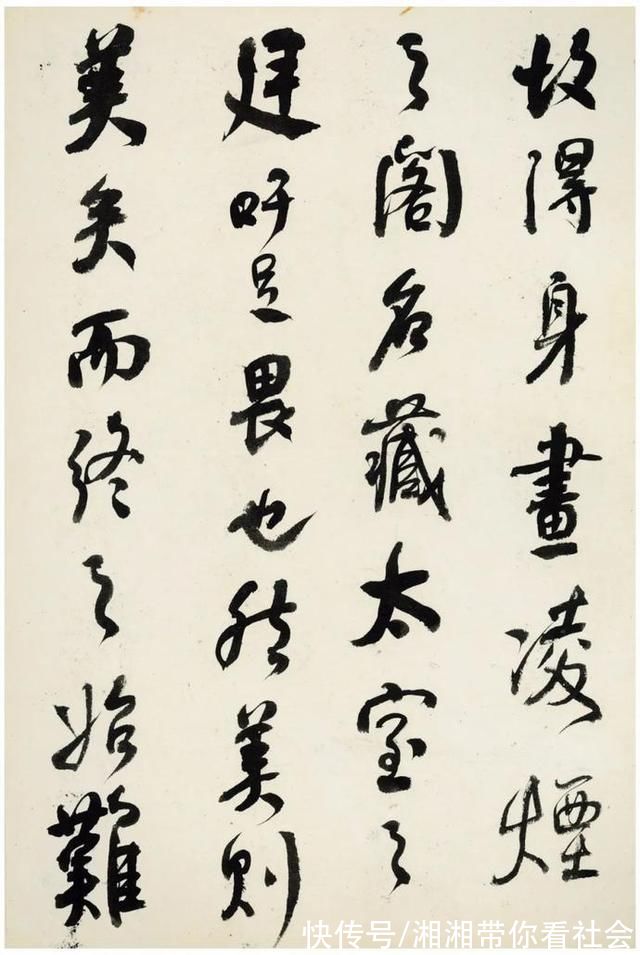 故得身畫凌煙
之閣名藏太室之
廷吁足畏也然美則
美矣而終之始難
快传号/湘湘带你看社会